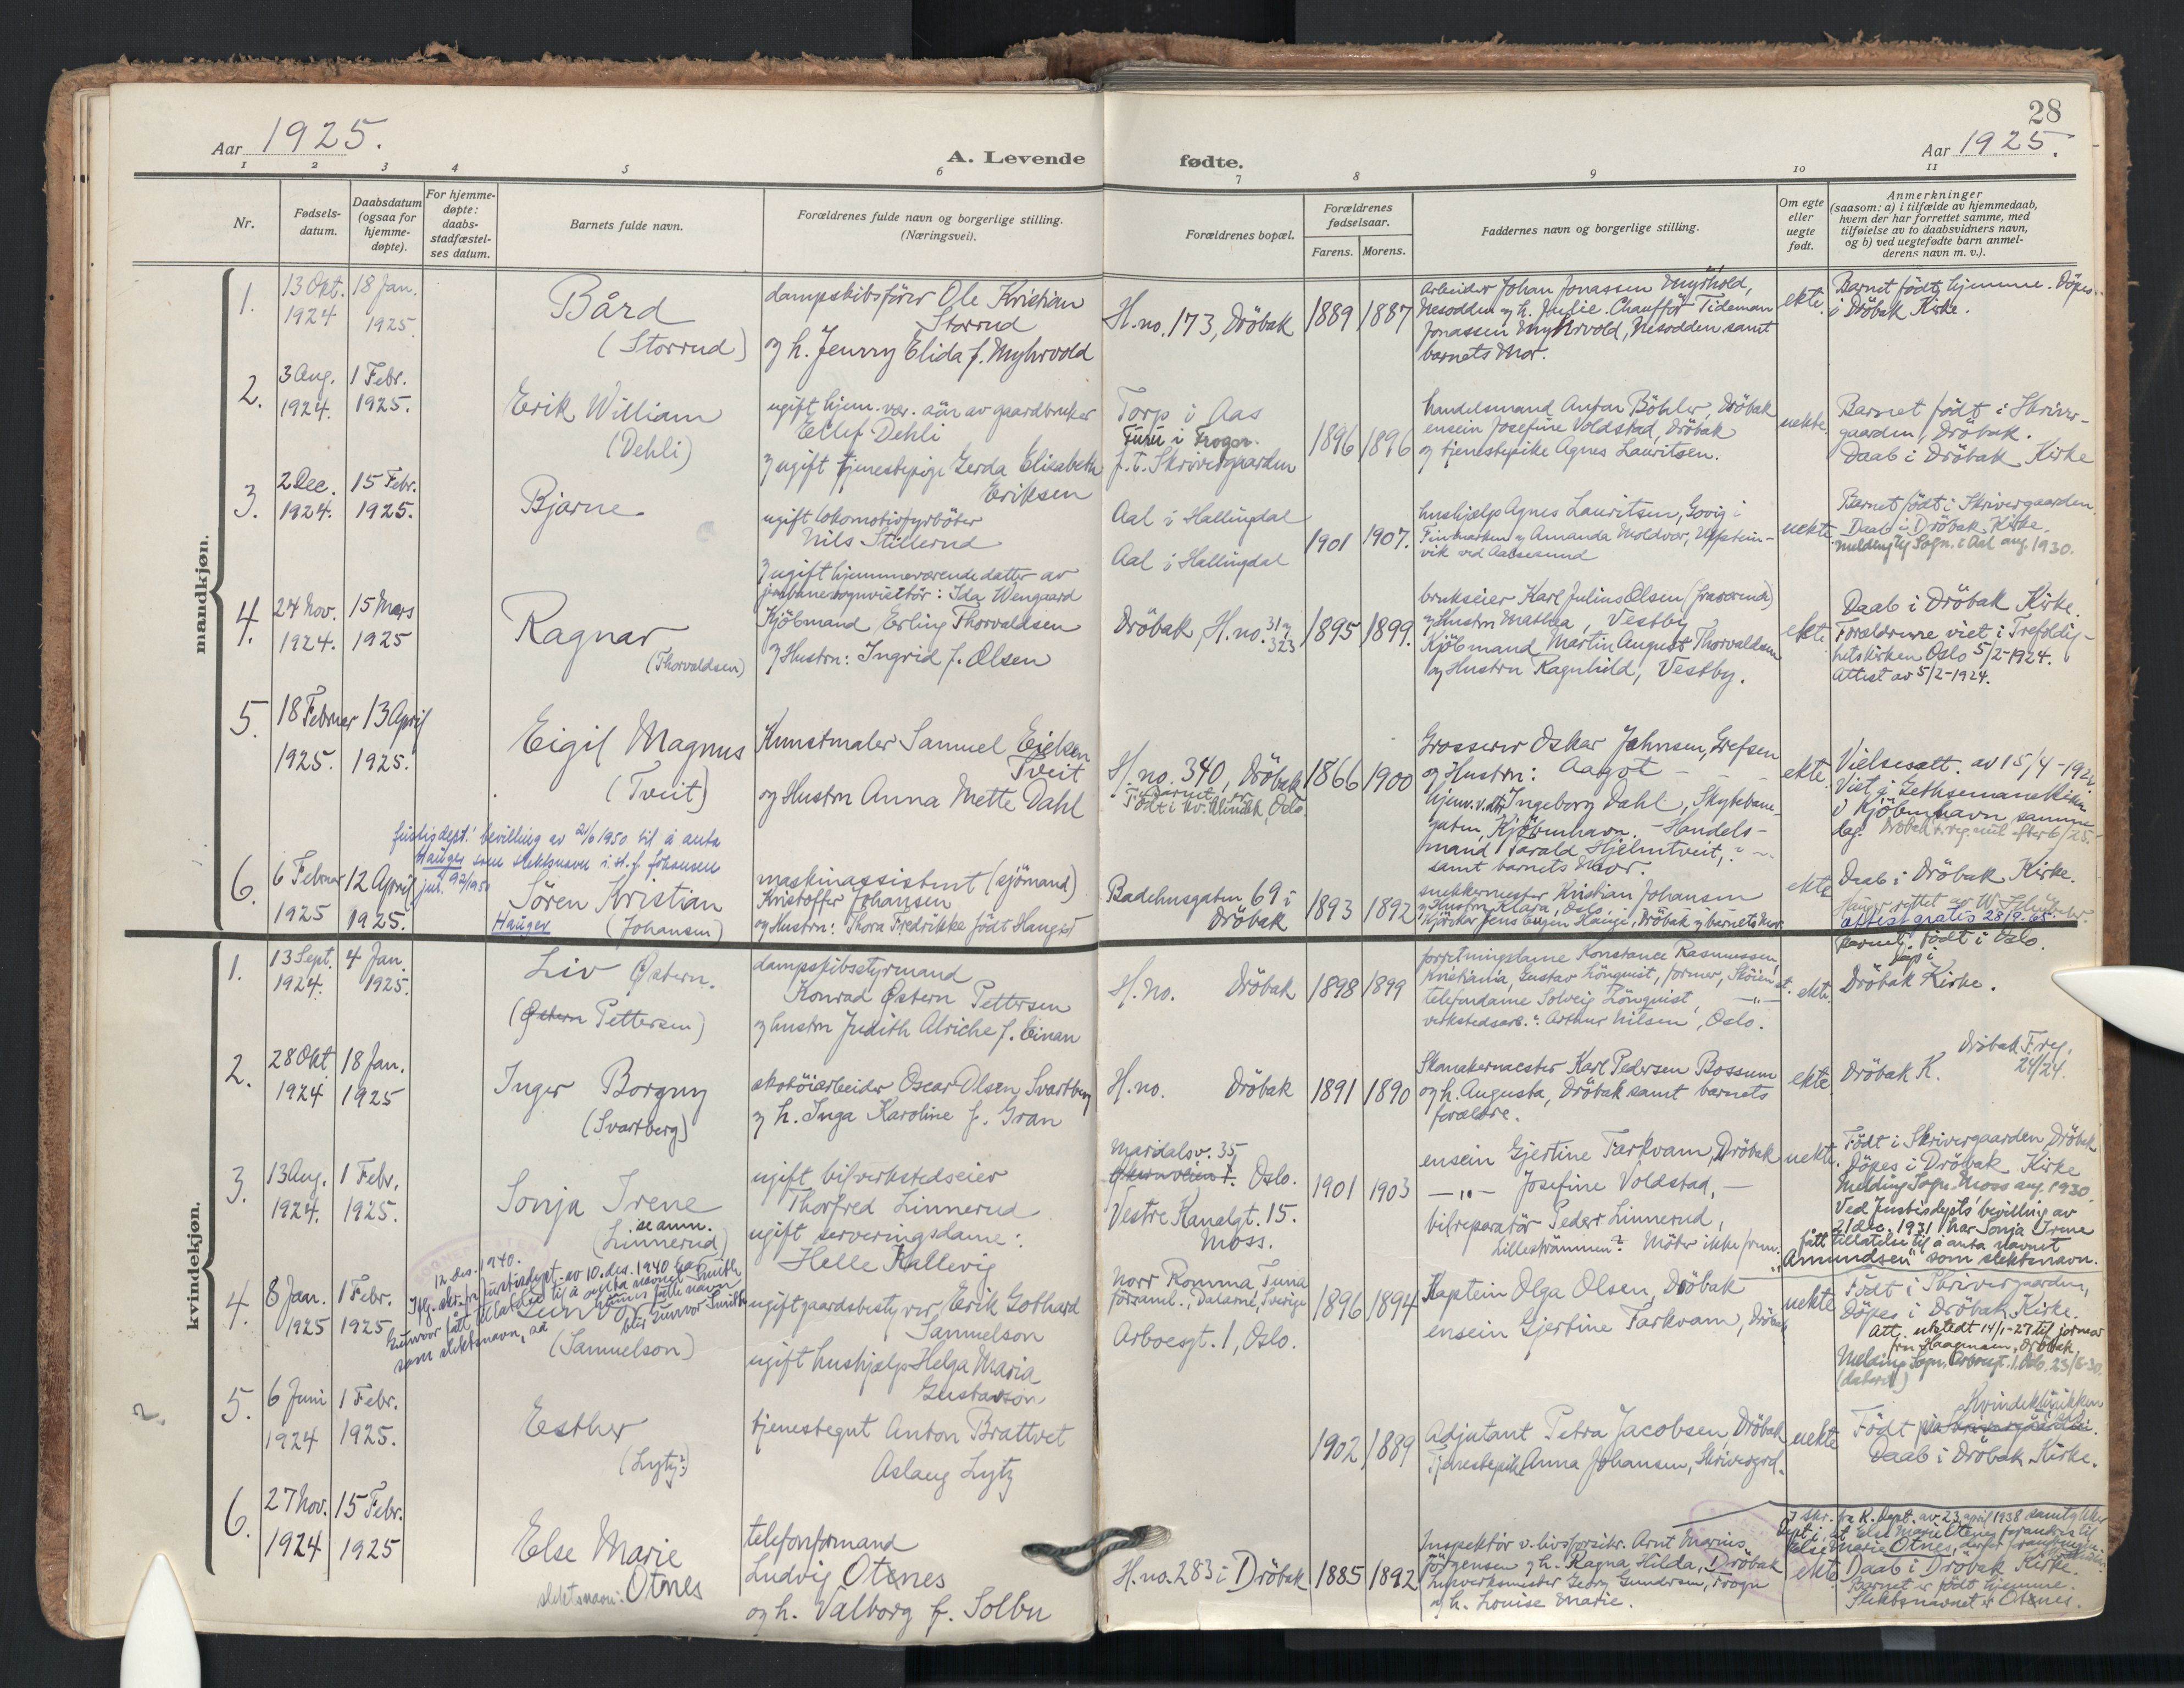 28
Aar 1925.
A. Levende fødte.
Aar 1925.
1 2 3 4 5 6 7 8 9 10 11
Nr.
Fødsels-
datum.
Daabsdatum
(ogsaa for
hjemme-
døpte).
For hjemme-
døpte:
daabs-
stadfæstel-
ses datum.
Barnets fulde navn.
Forældrenes fulde navn og borgerlige stilling.
(Næringsvei).
Forældrenes bopæl.
Forældrenes
fødselsaar.
Farens. Morens.
Faddernes navn og borgerlige stilling.
Om egte
eller
uegte
født.
Anmerkninger
(saasom: a) i tilfælde av hjemmedaab,
hvem der har forrettet samme, med
tilføielse av to daabsvidners navn,
og b) ved uegtefødte barn anmel-
derens navn m. v.).
mandkjøn.
1.
13 Okt.
1924
18 Jan.
1925.
Bård
(Storrud)
dampskibsfører Ole Kristian
Storrud
og h. Jenny Elida f. Myhrvold
H. no. 173, Dröbak
1889
1887
arbeider Johan Jonassen Myrhold,
Nesodden og h. Julie. Chauffør Tideman
Jonassen Myhrvold, Nesodden samt
barnets Mor.
ekte.
Barnet født hjemme. Döpes
i Dröbak Kirke.
2.
3 Aug.
1924.
1 Febr.
1925.
Erik William
(Dehli)
ugift hjem. vær. sön av gaardbruker
Ellef Dehli
og ugift tjenestepige Gerda Elisabeth
Eriksen
Torp i Aas
Furu i Frogn.
f. t. Skrivergaarden
1896
1896
handelsmand Anton Böhler, Dröbak
ensein Josefine Voldstad, Dröbak
og tjenestepike Agnes Lauritsen.
uekte.
Barnet födt i Skriver-
gaarden, Dröbak.
Daab i Dröbak Kirke
3.
2 Dec.
1924.
15 Febr.
1925.
Bjarne
ugift lokomotivfyrböter
Nils Stillerud
og ugift hjemmeværende datter av
: Ida Wengaard
Aal i Hallingdal
Aal i Hallingdal
1901
1907.
hushjælp Agnes Lauritsen, Govig i
Finmarken og Amanda Moldvær,
vik ved Aalesund
uekte.
Barnet födt i Skrivergaarden.
Daab i Dröbak Kirke.
Melding til Sogn. i Aal aug. 1930.
4.
24 Nov.
1924.
15 Mars
1925
Ragnar
(Thorvaldsen)
Kjöbmand Erling Thorvaldsen
og Hustru: Ingrid f. Olsen
Dröbak, H. no. 31 og 323
1895
1899.
brukseier Karl Julius Olsen (fraværende)
og Hustru Mathea, Vestby
Kjöbmand Martin August Thorvaldsen
og Hustru Ragnhild, Vestby.
ekte
Daab i Dröbak Kirke.
Forældrene viet i Trefoldig-
hetskirken Oslo 5/2-1924.
Attest av 5/2-1924.
5.
18 Februar
1925.
13 April
1925.
Eigil Magnus
(Tveit)
Kunstmaler Samuel Eielsen
Tveit
og Hustru Anna Mette Dahl
H. no. 340, Dröbak
Barnet er
Födt i Kv.klinikk, Oslo.
1866
1900
Grosserer Oskar Johnsen, Grefsen
og Hustru: Aagot
hjemv. dtr. Ingeborg Dahl, Skytebane-
gaten, Kjöbenhavn. - Handels-
mand Tarald Hjelmtveit,
samt barnets Mor.
ekte.
Vielsesatt. av 15/4-192
Viet i Gethsemane Kirken
i Kjöbenhavn samme
dag.
Justisdept.' bevilling av 21/6 1950 til å anta
Hauger som slektsnavn i. st. f. Johansen
6.
6 Februar
1925
12 April
1925.
Sören Kristian
Hauger
(Johansen)
maskinassistent (sjömand)
Kristoffer Johansen
og Hustru: Thora Fredrikke födt Hauger
Badehusgaten 69 i
Dröbak
1893
1892
snekkermester Kristian Johansen
og Hustru Klara, Oslo
Jens Eugen Hauge, Dröbak og barnets Mor
ekte
Daab i Dröbak Kirke.
Attest gratis 28/9. 65.
kvindekjøn.
1.
13 Sept.
1924.
4 Jan.
1925.
Liv Østern.
(Østern Pettersen)
dampskibsstyrmand
Konrad Østern Pettersen
og hustru Judith Alriche f. Einan
H. no. Dröbak
1898
1899
forretningsdame Konstance Rasmussen,
Kristiania, Gustav Lönquist, former, Skøien
telefondame Solveig Lönquist,
verkstedsarb. Arthur Nilsen, Oslo.
ekte.
Barnet födt i Oslo.
Döpt i
Dröbak Kirke.
2.
28 Okt.
1924
18 Jan.
1925
Inger Borgny
(Svartberg)
skotöiarbeider Oscar Olsen Svartberg
og h. Inga Karoline f. Gran
H. no. Dröbak
1891
1890
Skomakermester Karl Pedersen Bossum
og h. Augusta, Dröbak samt barnets
forældre.
ekte
Dröbak K.
Dröbak F. reg.
24/24.
3.
13 Aug.
1924.
1 Febr.
1925.
Sonja Irene
se anm.
(Linnerud)
ugift bilverkstedseier
Thorfred Linnerud
ugift serveringsdame:
Helle Kallevig
Maridalsv. 35,
Oslo.
Vestre Kanalgt. 15.
Moss.
1901
1903
ensein Gjertine Farkvam, Dröbak
—"— Josefine Voldstad, —
bilreparatör Peder Linnerud,
Lilleströmmen? Möter ikke frem.
uekte.
Födt i Skrivergaarden, Dröbak
Döpes i Dröbak Kirke
Melding Sogn. Moss aug. 1930.
Ved Justisdepts' bevilling av
21 dec. 1931 har Sonja Irene
fått tillatelse til å anta navnet
"Amundsen" som slektsnavn.
4.
8 Jan.
1925
1 Febr.
1925
12 des. 1940.
Iflg. skr. fra Justisdept. av 10. des. 1940 har
Gunvor fått tillatelse til å anta navnet Smith
som slektsnavn, så hennes fulle navn
blir Gunvor Smith
Gunvor
(Samuelson)
ugift gaardsbestyrer, Erik Gothard
Samuelson
ugift hushjælp Helga Maria
Gustavson
Norr Romma, Tuna
församl., Dalarne, Sverige
Arboesgt. 1, Oslo.
1896
1894
Kaptein Olga Olsen, Dröbak
ensein Gjertine Farkvam, Dröbak
uekte
Födt i Skrivergaarden,
Döpes i Dröbak Kirke.
Att. utstedt 14/1-27 til jormor
fru Haagensen, Dröbak.
Melding Sogn. Arboesgt. 1, Oslo. 23/8-30.
5.
6 Juni
1924
1 Febr.
1925.
Esther
(Lytz?)
tjenestegut Anton Brattvet
Aslaug Lytz
1902
1889
Adjutant Petra Jacobsen, Dröbak
Tjenestepike Anna Johansen, Skrivergrd.
uekte
Kvindeklinikken
Födt
Daab i Dröbak Kirke.
6.
27 Nov.
1924
15 Febr.
1925
Else Marie
slektsnavn: Otnes
telefonformand
Ludvig Otnes
og h. Valborg f. Solbu
H. no. 283 i Dröbak
1885
1892
Inspektör v. livsforsikr. Arnt Marius
Jörgensen og h. Ragna Hilda, Dröbak
Georg Gundersen, Frogn
og h. Louise Marie.
ekte
I skr. fra K. Dept. av 23 april 1938 samtykker
Dept. i, at Else Marie Otenes forandres til
Else Marie Otnes,
Daab i Dröbak Kirke.
Barnet er födt hjemme.
Slektsnavnet er Otnes.